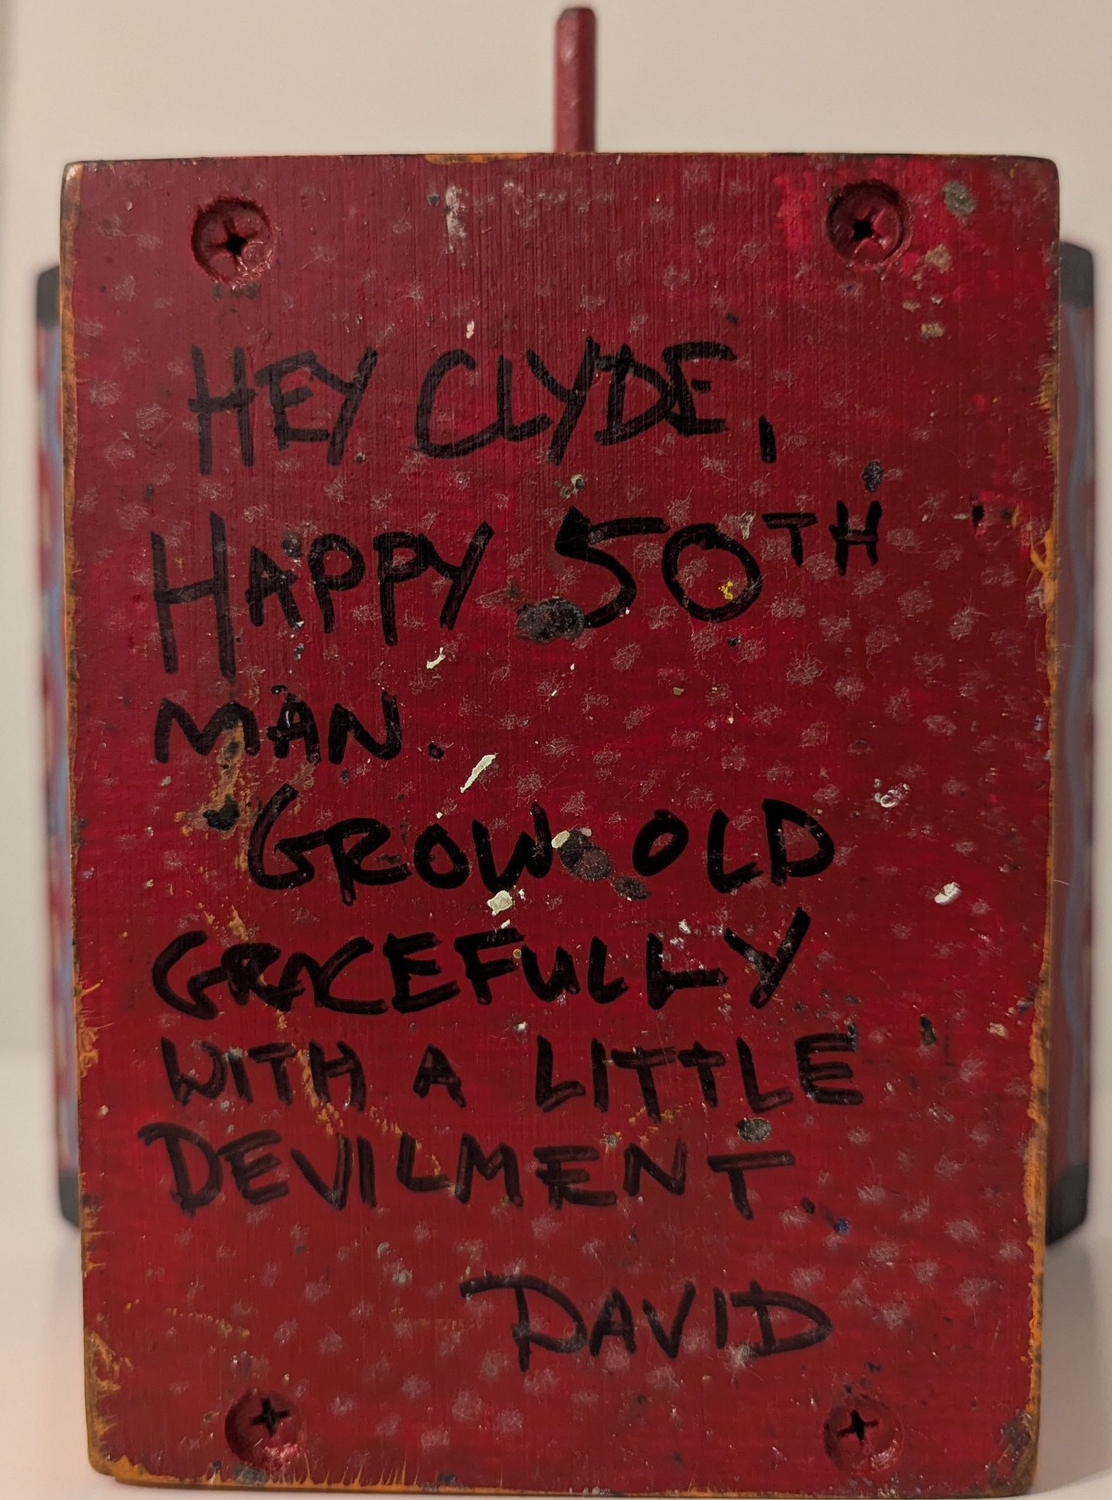 HEY CLYDE,
HAPPY 50TH
MAN.
GROW OLD
GRACEFULLY
WITH A LITTLE
DEVILMENT.
DAVID